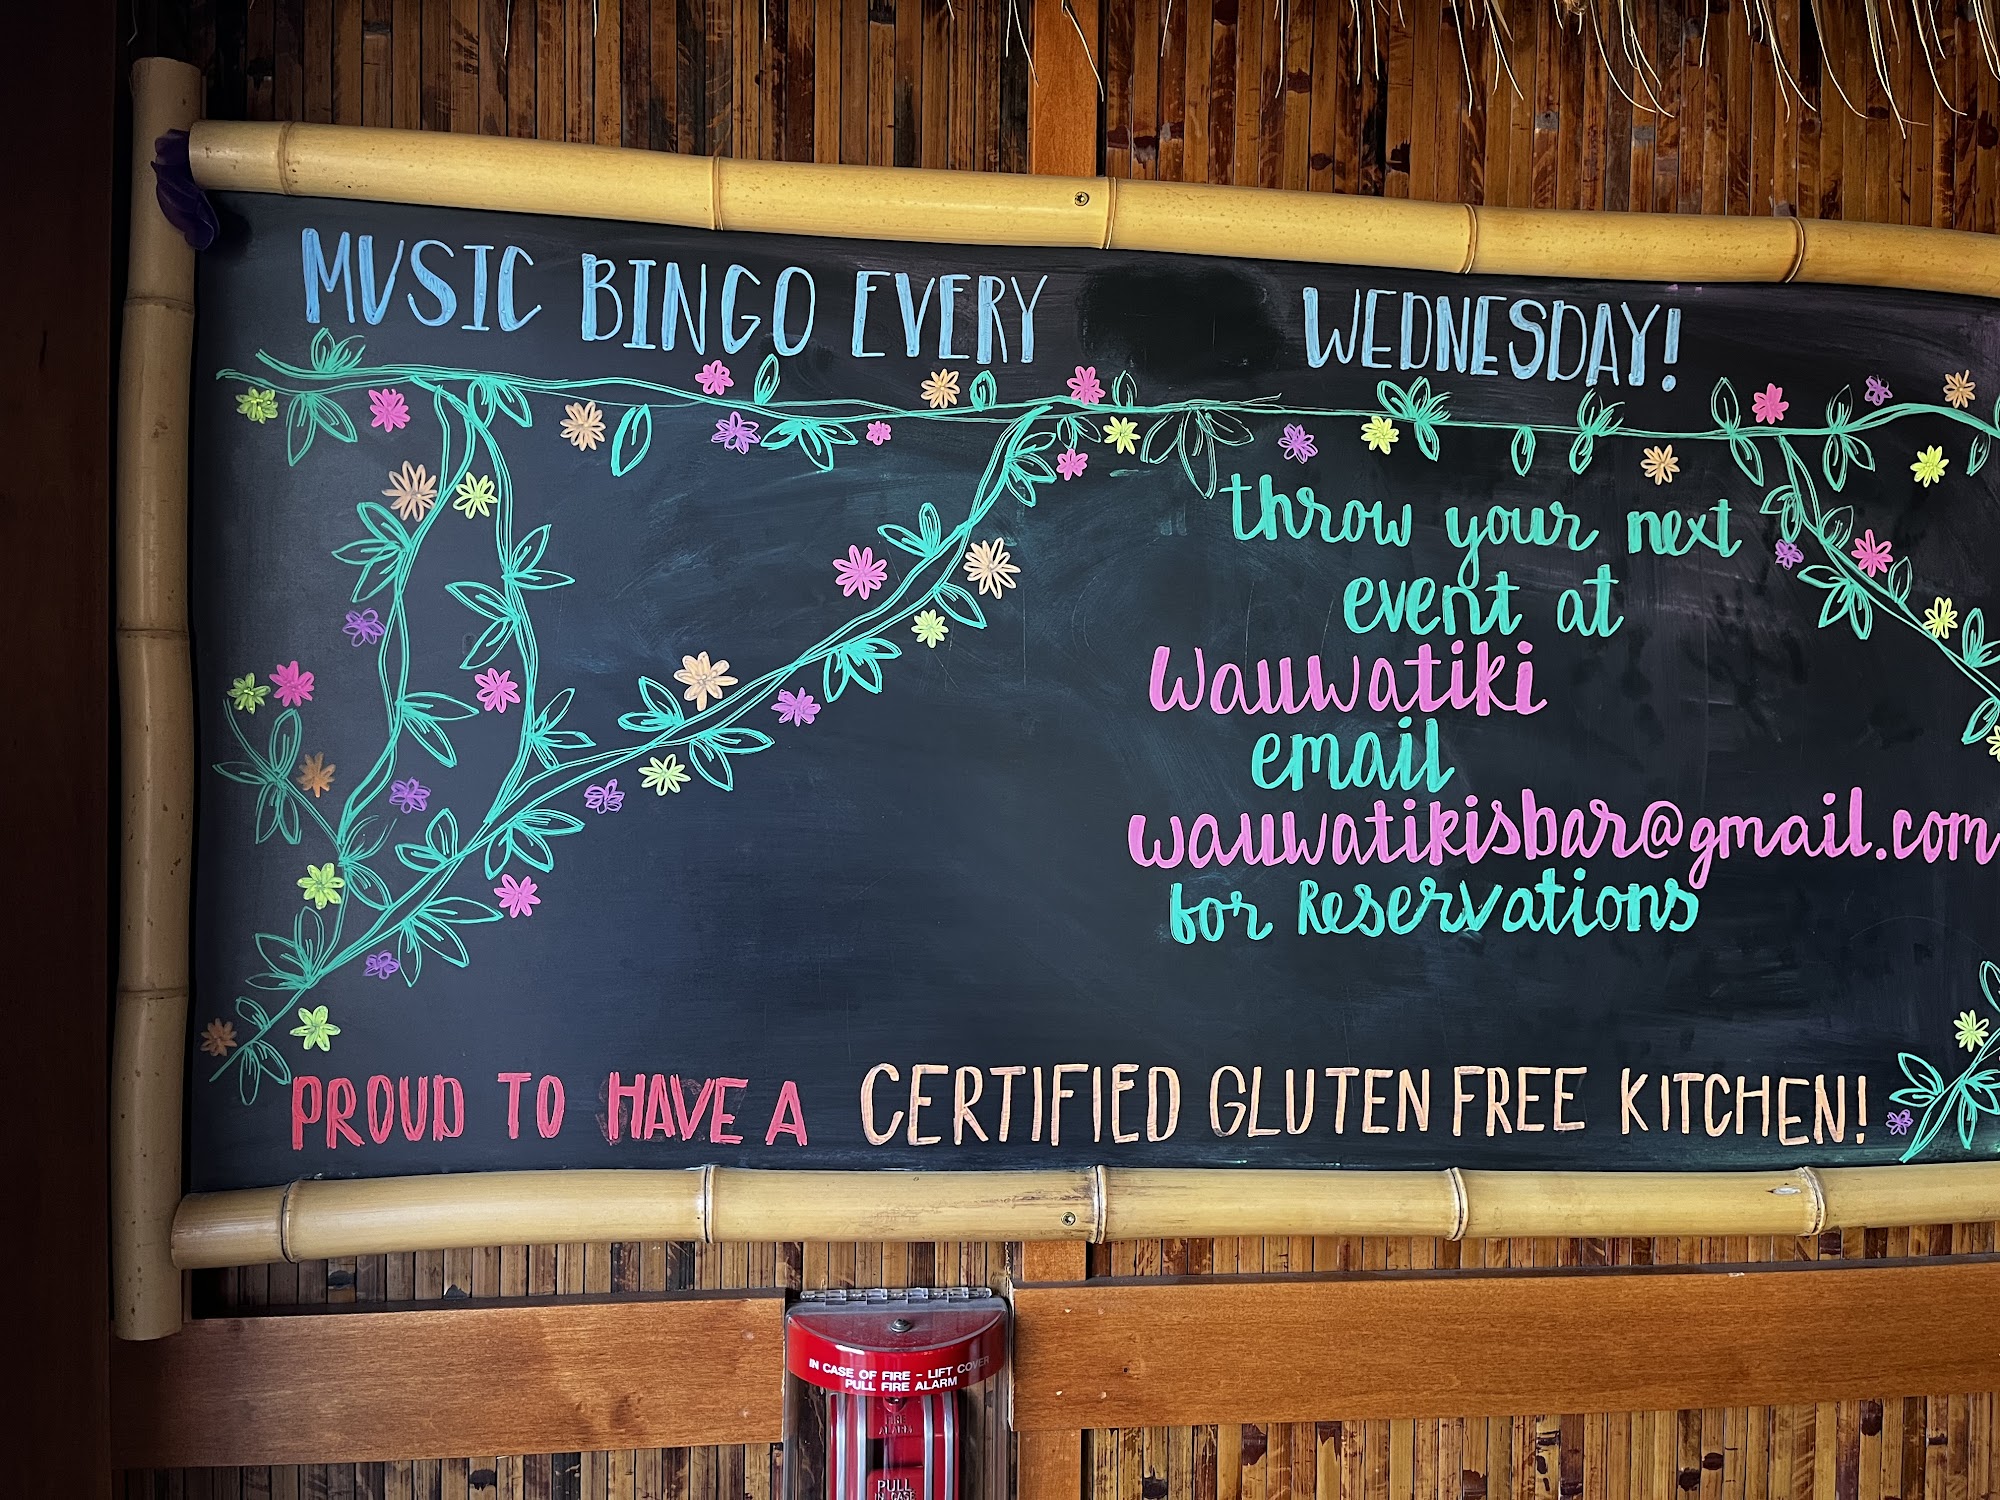 MUSIC BINGO EVERY WEDNESDAY!
throw your next
event at
Wauwatiki
email
wauwatikisbar@gmail.com
for Reservations
PROUD TO HAVE A CERTIFIED GLUTEN FREE KITCHEN!
IN CASE OF FIRE - LIFT COVER
PULL FIRE ALARM
FIRE
ALARM
PULL
IN CASE